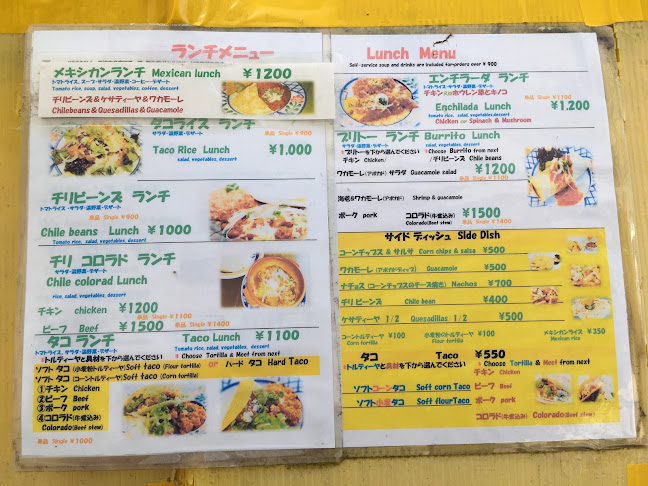 ランチメニュー
メキシカンランチ Mexican lunch ¥1200
トマトライス、スープ・サラダ・温野菜・コーヒー・デザート
Tomato rice, soup, salad, vegetables, coffee, dessert
チリビーンズ&ケサディーヤ&ワカモーレ
Chilebeans & Quesadillas & Guacamole
タコライス ランチ 単品 Single ¥900
サラダ・温野菜・デザート
Taco Rice Lunch ¥1.000
salad, vegetables, dessert
チリビーンズ ランチ
トマトライス・サラダ・温野菜・デザート
単品 Single ¥900
Chile beans Lunch ¥1000
Tomato rice, salad, vegetables, dessert
チリ コロラド ランチ
ライス・サラダ・温野菜・デザート
Chile colorad Lunch
rice, salad, vegetables, dessert
チキン chicken ¥1200
単品 Single ¥1100
ビーフ Beef ¥1500 単品 Single ¥1400
タコ ランチ Taco Lunch ¥1100
トマトライス・サラダ・温野菜・デザート Tomato rice, salad, vegetables, dessert
トルティーヤと具材を下から選んでください Choose Tortilla & Meet from next
ソフト タコ (小麦粉トルティーヤ)Soft taco (Flour tortilla) or ハード タコ Hard Taco
ソフト タコ (コーントルティーヤ)Soft taco (Corn tortilla)
①チキン Chicken
②ビーフ Beef
③ポーク pork
④コロラド(牛煮込み)
Colorado(Beef stew)
単品 Single ¥1000
Lunch Menu
Self-service soup and drinks are included for orders over ¥ 900
エンチラーダ ランチ
トマトライス・サラダ・温野菜・デザート
チキン又はホウレン草とキノコ
単品 Single ¥1100
Enchilada Lunch ¥1.200
Tomato rice, salad, vegetables, dessert
Chicken or Spinach & Mushroom
ブリトー ランチ Burrito Lunch
サラダ・温野菜・デザート salad, vegetables, dessert
ブリトーを下から選んでください Choose Burrito from next
チキン Chicken/ /チリビーンズ Chile beans
ワカモーレ(アボカド) サラダ Guacamole salad ¥1200
単品 Single ¥1100
海老&ワカモーレ(アボカド) Shrimp & guacamole
ポーク pork コロラド(牛煮込み) ¥1500
Colorado(Beef stew) 単品 Single ¥1400
サイド ディッシュ Side Dish
コーンチップス & サルサ Corn chips & salsa ¥500
ワカモーレ (アボカドディップ) Guacamole ¥500
ナチョス (コーンチップスのチーズ焼き) Nachos ¥700
チリ ビーンズ Chile bean ¥400
ケサティーヤ 1/2 Quesadillas 1/2 ¥500
コーントルティーヤ ¥100
Corn tortilla
小麦粉トルティーヤ ¥100
Flour tortilla
メキシカンライス ¥350
Mexican rice
タコ Taco ¥550
トルティーヤと具材を下から選んでください Choose Tortilla & Meet from next
チキン Chicken
ソフトコーンタコ Soft corn Taco ビーフ Beef
ソフト小麦タコ Soft flourTaco ポーク pork
コロラド(牛煮込み)
Colorado(Beef stew)